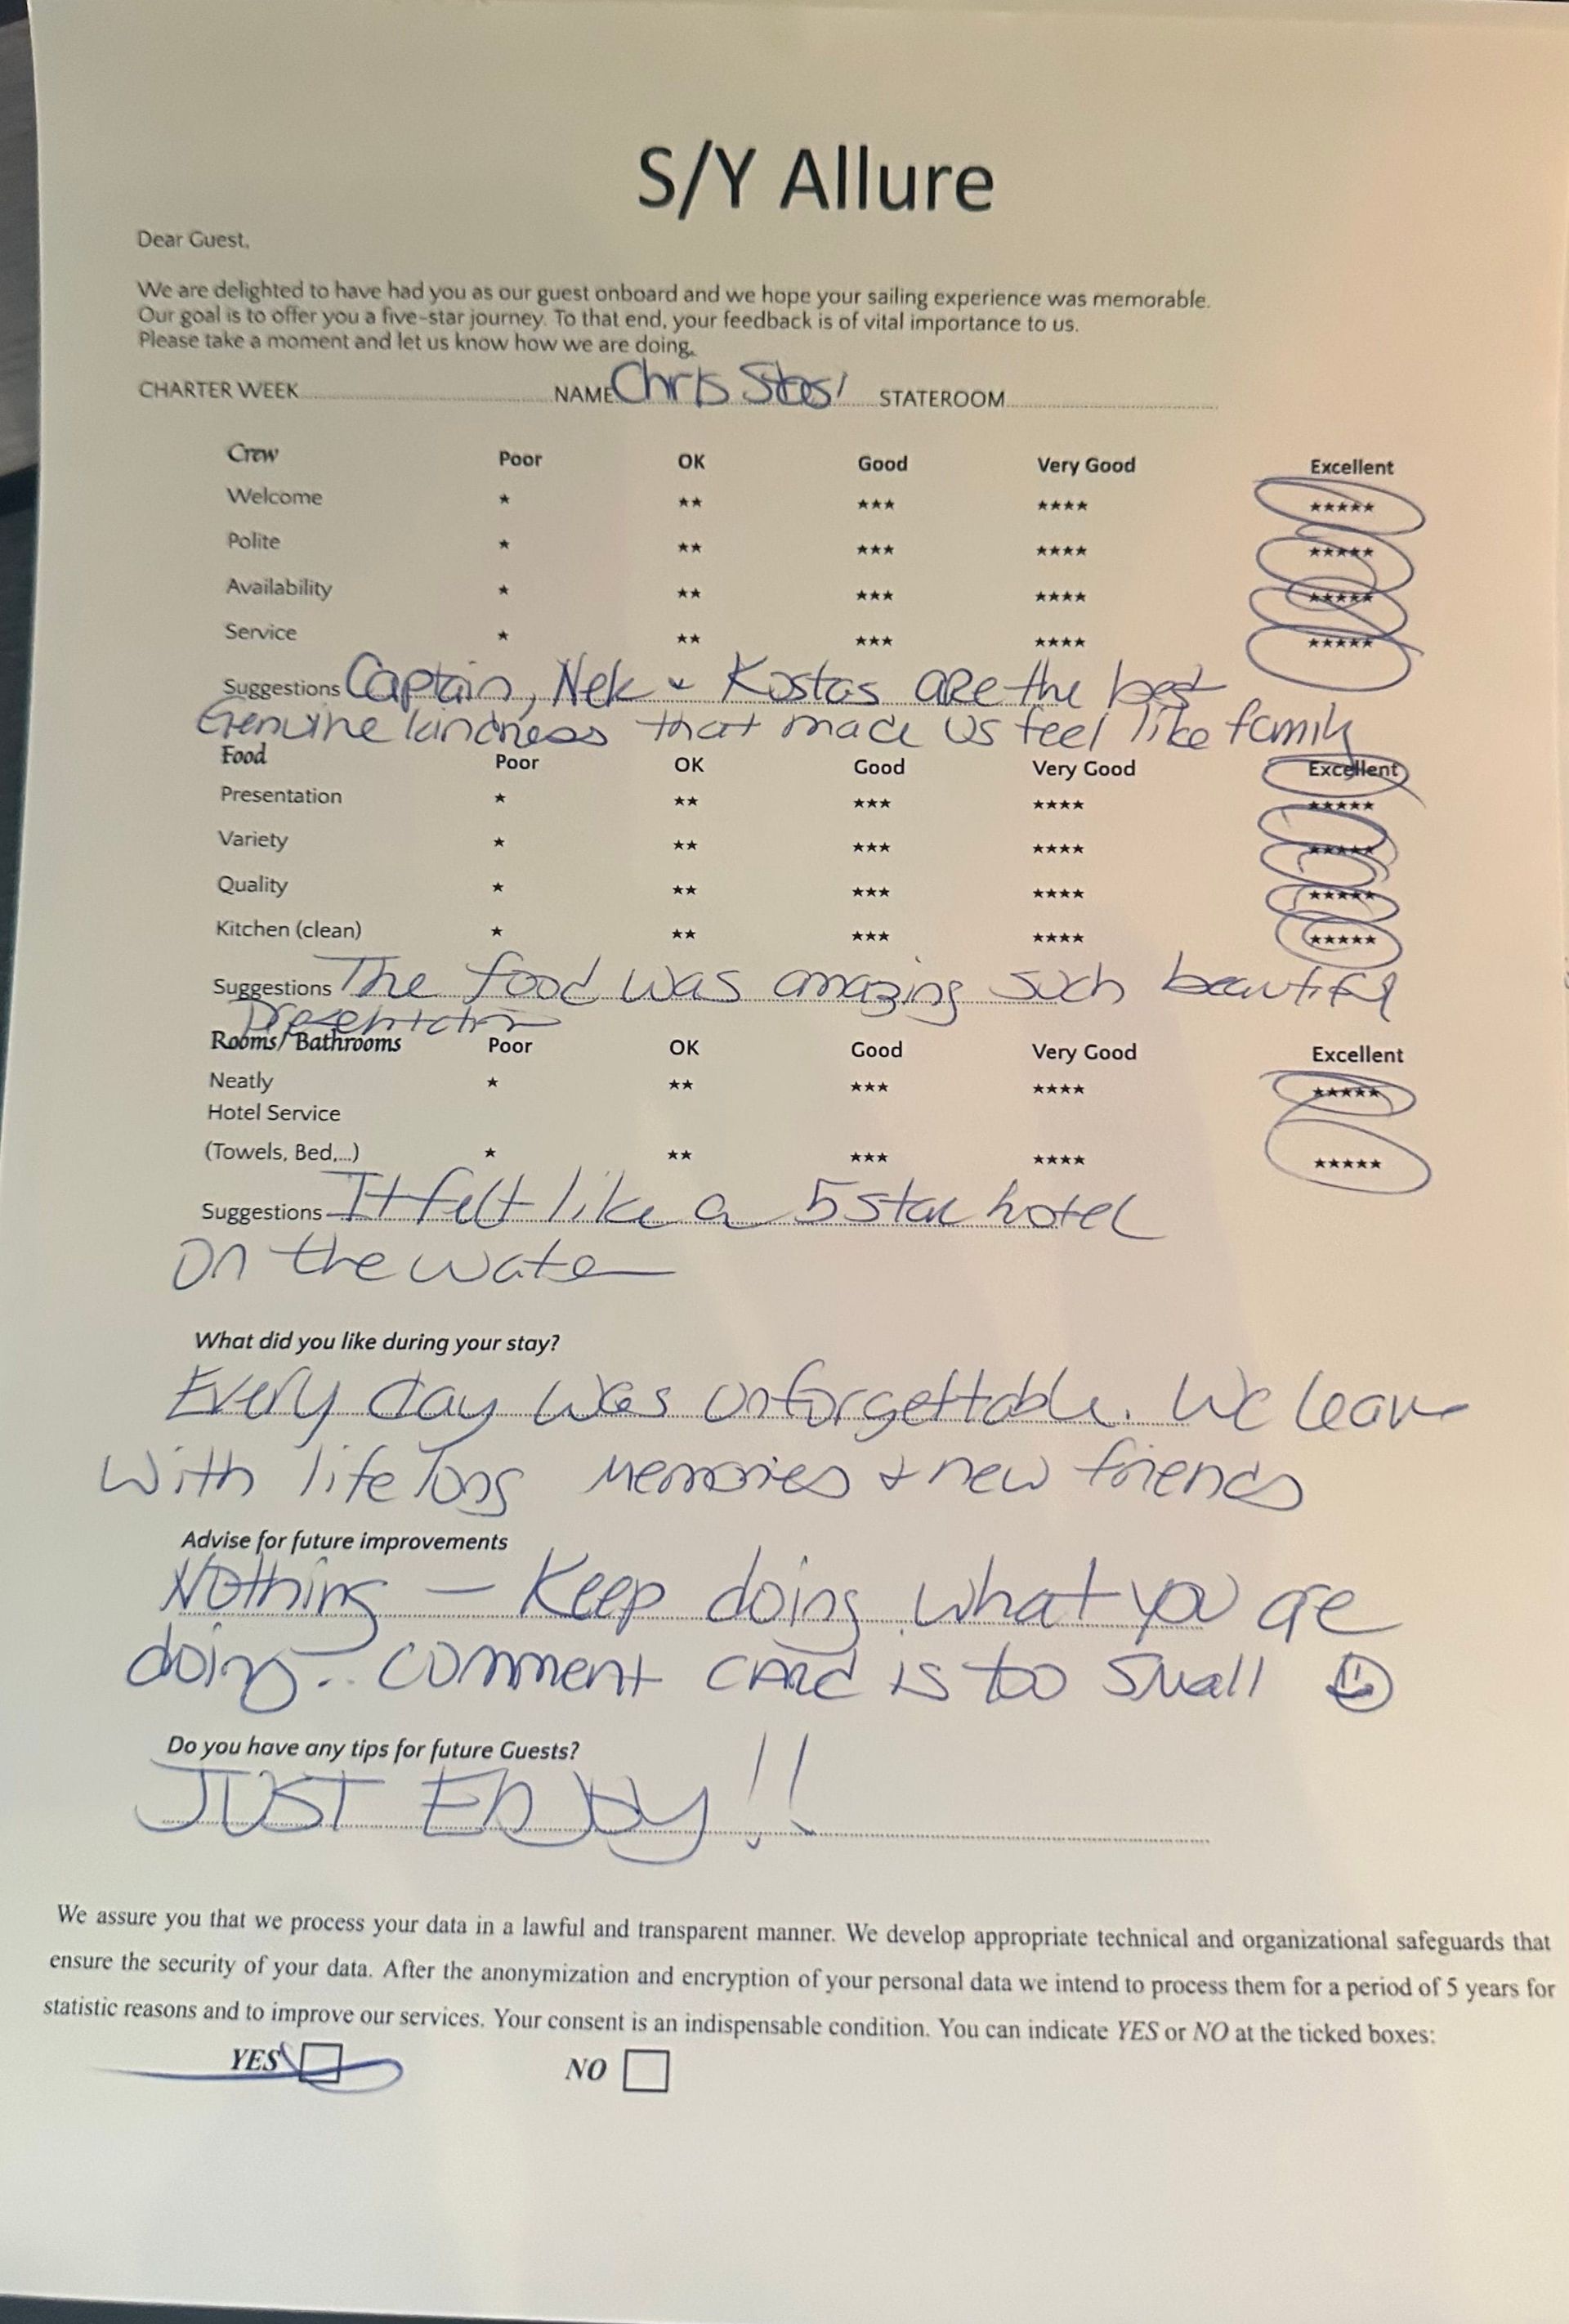 S/Y Allure
Dear Guest,
We are delighted to have had you as our guest onboard and we hope your sailing experience was memorable.
Our goal is to offer you a five-star journey. To that end, your feedback is of vital importance to us.
Please take a moment and let us know how we are doing.
CHARTER WEEK NAME Chris STATEROOM
Crew Poor OK Good Very Good Excellent
Welcome ★ ★★ ★★★ ★★★★ ★★★★★
Polite ★ ★★ ★★★ ★★★★ ★★★★★
Availability ★ ★★ ★★★ ★★★★ ★★★★★
Service ★ ★★ ★★★ ★★★★ ★★★★★
Suggestions Captain, Nek & Kostas are the best
Genuine kindness that made us feel like family
Food Poor OK Good Very Good Excellent
Presentation ★ ★★ ★★★ ★★★★ ★★★★★
Variety ★ ★★ ★★★ ★★★★ ★★★★★
Quality ★ ★★ ★★★ ★★★★ ★★★★★
Kitchen (clean) ★ ★★ ★★★ ★★★★ ★★★★★
Suggestions The food was amazing such beautiful
Presentation
Rooms/ Bathrooms Poor OK Good Very Good Excellent
Neatly ★ ★★ ★★★ ★★★★ ★★★★★
Hotel Service
(Towels, Bed,...) ★ ★★ ★★★ ★★★★ ★★★★★
Suggestions It felt like a 5 star hotel
on the water
What did you like during your stay?
Every day was unforgettable. We leave
with life long memories & new friends
Advise for future improvements
Nothing — Keep doing what you are
doing... comment card is too small ☺
Do you have any tips for future Guests?
JUST ENJOY!!
We assure you that we process your data in a lawful and transparent manner. We develop appropriate technical and organizational safeguards that
ensure the security of your data. After the anonymization and encryption of your personal data we intend to process them for a period of 5 years for
statistic reasons and to improve our services. Your consent is an indispensable condition. You can indicate YES or NO at the ticked boxes:
YES NO